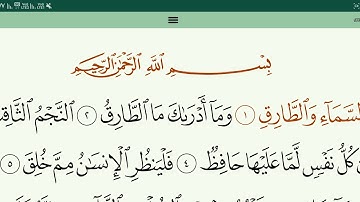 بِسْمِ اللَّهِ الرَّحْمَٰنِ الرَّحِيمِ
السَّمَاءِ وَالطَّارِقِ ١ وَمَا أَدْرَاكَ مَا الطَّارِقُ ٢ النَّجْمُ الثَّاقِ
كُلُّ نَفْسٍ لَّمَّا عَلَيْهَا حَافِظٌ ٤ فَلْيَنظُرِ الْإِنسَانُ مِمَّ خُلِقَ ٥